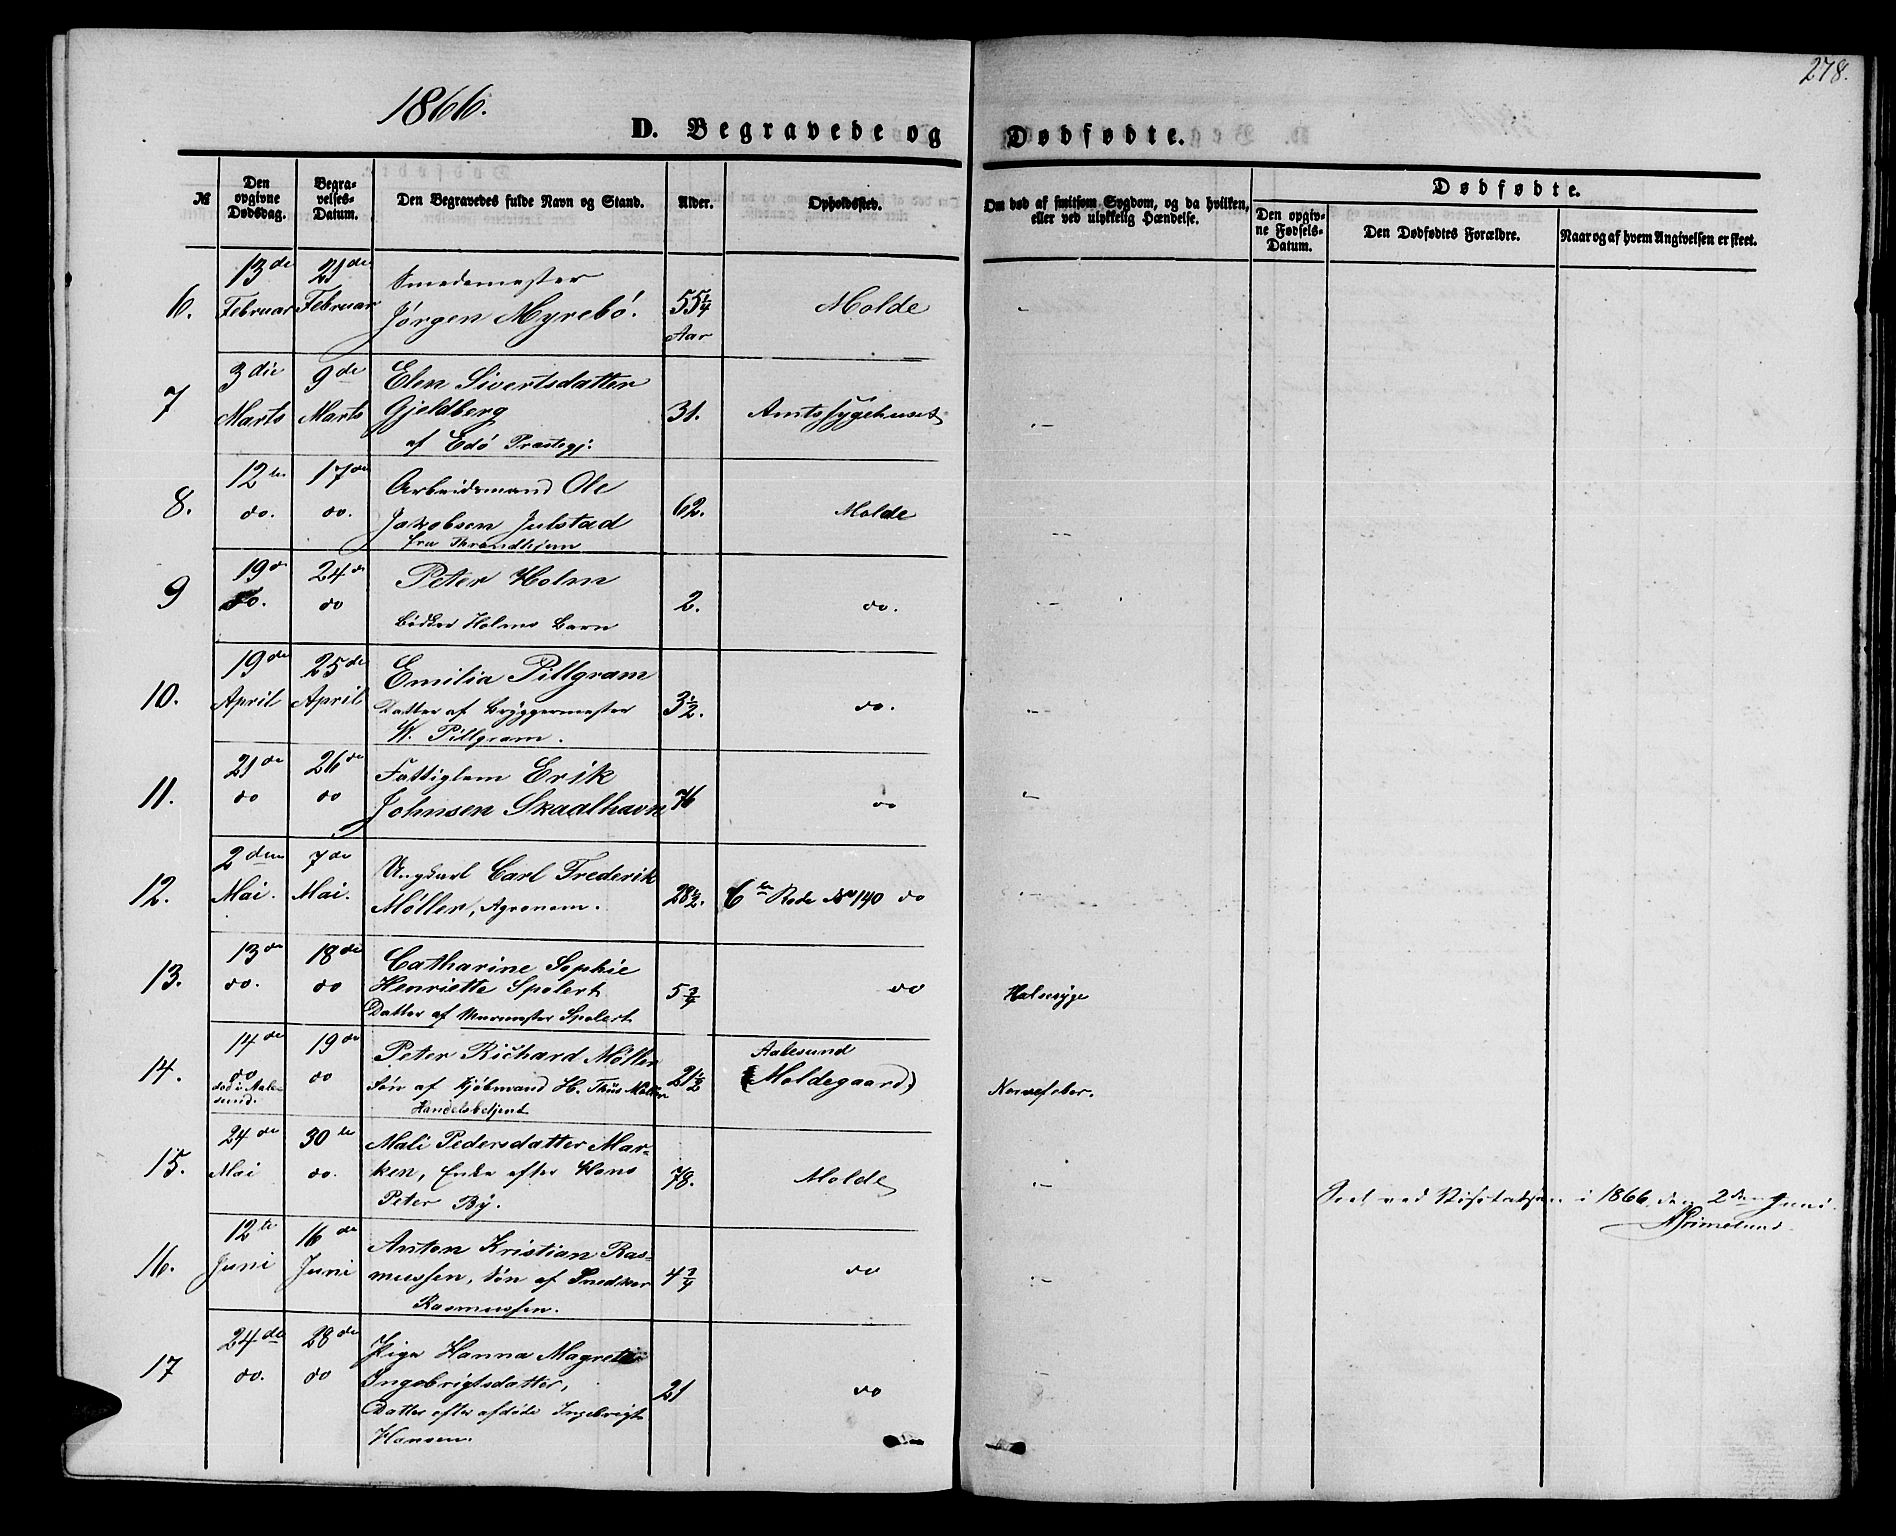 278.
1866.
D. Begravede og Dødfødte.
№
Den opgivne Dødsdag.
Begravelses-Datum.
Den Begravedes fulde Navn og Stand.
Alder.
Opholdssted.
Om død af smitsom Sygdom, og da hvilken, eller ved ulykkelig Hændelse.
Dødfødte.
Den opgivne Fødsels-Datum.
Den Dødfødtes Forældre.
Naar og af hvem Angivelsen er skeet.
6. 13de Februar 21de Februar Smedemester
Jørgen Myrebö. 55 1/4 Aar Molde
7 3die Marts 9de Marts Elen Sivertsdatter
Gjeldberg 31. Amtssygehuset
af Edö Præstegj.
8. 12te do. 17de do. Arbeidsmand Ole
Jakobsen Julstad 62. Molde
fra Throndhjem
9 19de do. 24de do Peter Holm 2. do.
Bödker Holms Barn
10. 19de April 25de April Emilia Pillgram
Datter af Bryggermester 3 1/2. do.
W. Pillgram.
11. 21de do 26de do Fattiglem Erik
Johnsen Skaalhavn 76 do
12. 2den Mai. 7de Mai. Ungkarl Carl Frederik
Möller, Agronom. 28 1/2. 6te Rode No 140 do
13. 13de do. 18de do Catharine Sophie
Henriette Spolert 5 3/4 do Halssyge
Datter af Murmester Spolert
14. 14de do död i Aalesund. 19de do Peter Richard Möller
Sön af Kjöbmand H. Thiis Möller 21 1/2 Aalesund (Moldegaard) Nervefeber.
Handelsbetjent
15. 24de Mai 30te do. Mali Pedersdatter Mar-
ken, Enke efter Hans 78. Molde
Peter By.
Seet ved Visitatsen i 1866 den 2den Juni.
16. 12te Juni 16de Juni Anton Kristian Ras-
mussen, Sön af Snedker 4 3/4 do
Rasmussen.
17 24de do. 28de do Pige Hanna Magreta
Ingebrigtsdatter, 21 do
Datter efter afdöde Ingebrigt
Hansen.